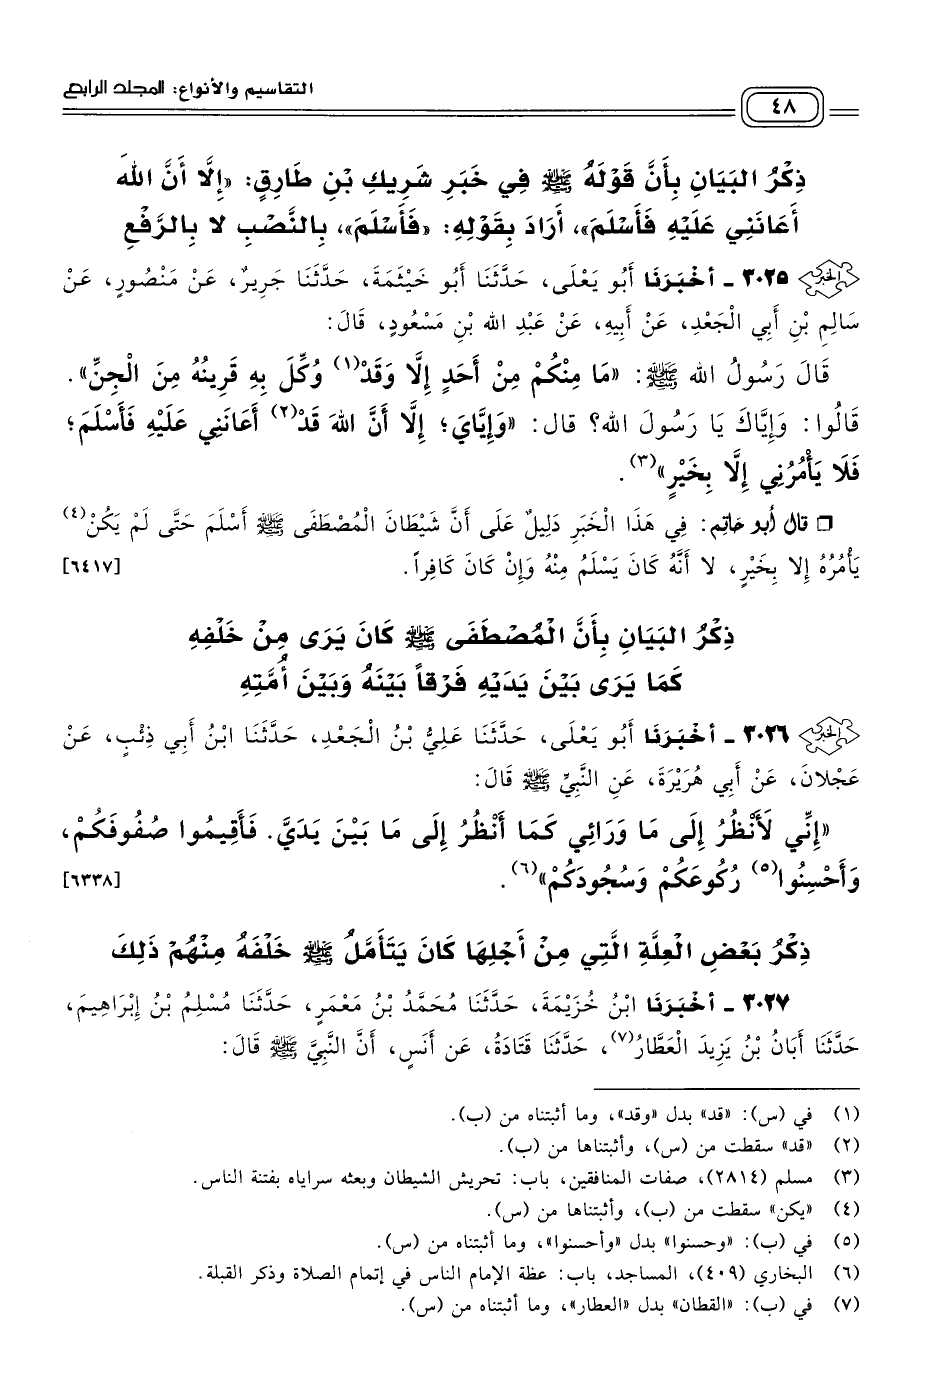 التقاسيم والأنواع: المجلد الرابع
٤٨
ذِكْرُ البَيَانِ بِأَنَّ قَوْلَهُ ﷺ فِي خَبَرِ شَرِيكِ بْنِ طَارِقٍ: «إِلَّا أَنَّ اللهَ
أَعَانَنِي عَلَيْهِ فَأَسْلَمَ»، أَرَادَ بِقَوْلِهِ: «فَأَسْلَمَ»، بِالنَّصْبِ لا بِالرَّفْعِ
٣٠٢٥ - أَخْبَرَنَا أَبُو يَعْلَى، حَدَّثَنَا أَبُو خَيْثَمَةَ، حَدَّثَنَا جَرِيرٌ، عَنْ مَنْصُورٍ، عَنْ
سَالِمِ بْنِ أَبِي الْجَعْدِ، عَنْ أَبِيهِ، عَنْ عَبْدِ الله بْنِ مَسْعُودٍ، قَالَ:
قَالَ رَسُولُ الله ﷺ: «مَا مِنْكُمْ مِنْ أَحَدٍ إِلَّا وَقَدْ(١) وُكِّلَ بِهِ قَرِينُهُ مِنَ الْجِنِّ».
قَالُوا: وَإِيَّاكَ يَا رَسُولَ الله؟ قال: «وَإِيَّايَ؛ إِلَّا أَنَّ اللهَ قَدْ(٢) أَعَانَنِي عَلَيْهِ فَأَسْلَمَ؛
فَلَا يَأْمُرُنِي إِلَّا بِخَيْرٍ»(٣).
❒ قال أبو حاتم: فِي هَذَا الْخَبَرِ دَلِيلٌ عَلَى أَنَّ شَيْطَانَ الْمُصْطَفَى ﷺ أَسْلَمَ حَتَّى لَمْ يَكُنْ(٤)
يَأْمُرُهُ إِلا بِخَيْرٍ، لا أَنَّهُ كَانَ يَسْلَمُ مِنْهُ وَإِنْ كَانَ كَافِراً. [٦٤١٧]
ذِكْرُ البَيَانِ بِأَنَّ الْمُصْطَفَى ﷺ كَانَ يَرَى مِنْ خَلْفِهِ
كَمَا يَرَى بَيْنَ يَدَيْهِ فَرْقاً بَيْنَهُ وَبَيْنَ أُمَّتِهِ
٣٠٢٦ - أَخْبَرَنَا أَبُو يَعْلَى، حَدَّثَنَا عَلِيُّ بْنُ الْجَعْدِ، حَدَّثَنَا ابْنُ أَبِي ذِئْبٍ، عَنْ
عَجْلانَ، عَنْ أَبِي هُرَيْرَةَ، عَنِ النَّبِيِّ ﷺ قَالَ:
«إِنِّي لَأَنْظُرُ إِلَى مَا وَرَائِي كَمَا أَنْظُرُ إِلَى مَا بَيْنَ يَدَيَّ. فَأَقِيمُوا صُفُوفَكُمْ،
وَأَحْسِنُوا(٥) رُكُوعَكُمْ وَسُجُودَكُمْ»(٦). [٦٣٣٨]
ذِكْرُ بَعْضِ الْعِلَّةِ الَّتِي مِنْ أَجْلِهَا كَانَ يَتَأَمَّلُ ﷺ خَلْفَهُ مِنْهُمْ ذَلِكَ
٣٠٢٧ - أَخْبَرَنَا ابْنُ خُزَيْمَةَ، حَدَّثَنَا مُحَمَّدُ بْنُ مَعْمَرٍ، حَدَّثَنَا مُسْلِمُ بْنُ إِبْرَاهِيمَ،
حَدَّثَنَا أَبَانُ بْنُ يَزِيدَ الْعَطَّارُ(٧)، حَدَّثَنَا قَتَادَةُ، عَنِ أَنَسٍ، أَنَّ النَّبِيَّ ﷺ قَالَ:
(١) في (س): «قد» بدل «وقد»، وما أثبتناه من (ب).
(٢) «قد» سقطت من (س)، وأثبتناها من (ب).
(٣) مسلم (٢٨١٤)، صفات المنافقين، باب: تحريش الشيطان وبعثه سراياه بفتنة الناس.
(٤) «يكن» سقطت من (ب)، وأثبتناها من (س).
(٥) في (ب): «وحسنوا» بدل «وأحسنوا»، وما أثبتناه من (س).
(٦) البخاري (٤٠٩)، المساجد، باب: عظة الإمام الناس في إتمام الصلاة وذكر القبلة.
(٧) في (ب): «القطان» بدل «العطار»، وما أثبتناه من (س).